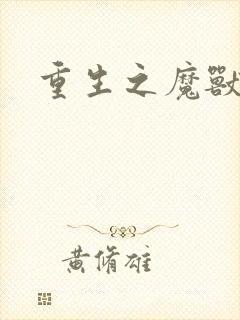 重生之魔獸
黄脩雄